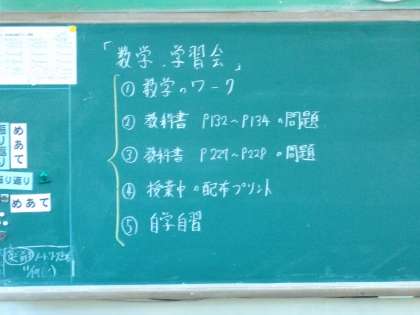 「数学 学習会」
① 数学のワーク
② 教科書 P132〜P134の問題
③ 教科書 P227〜P229の問題
④ 授業中の配布プリント
⑤ 自学自習
めあて
振り返り
めあて